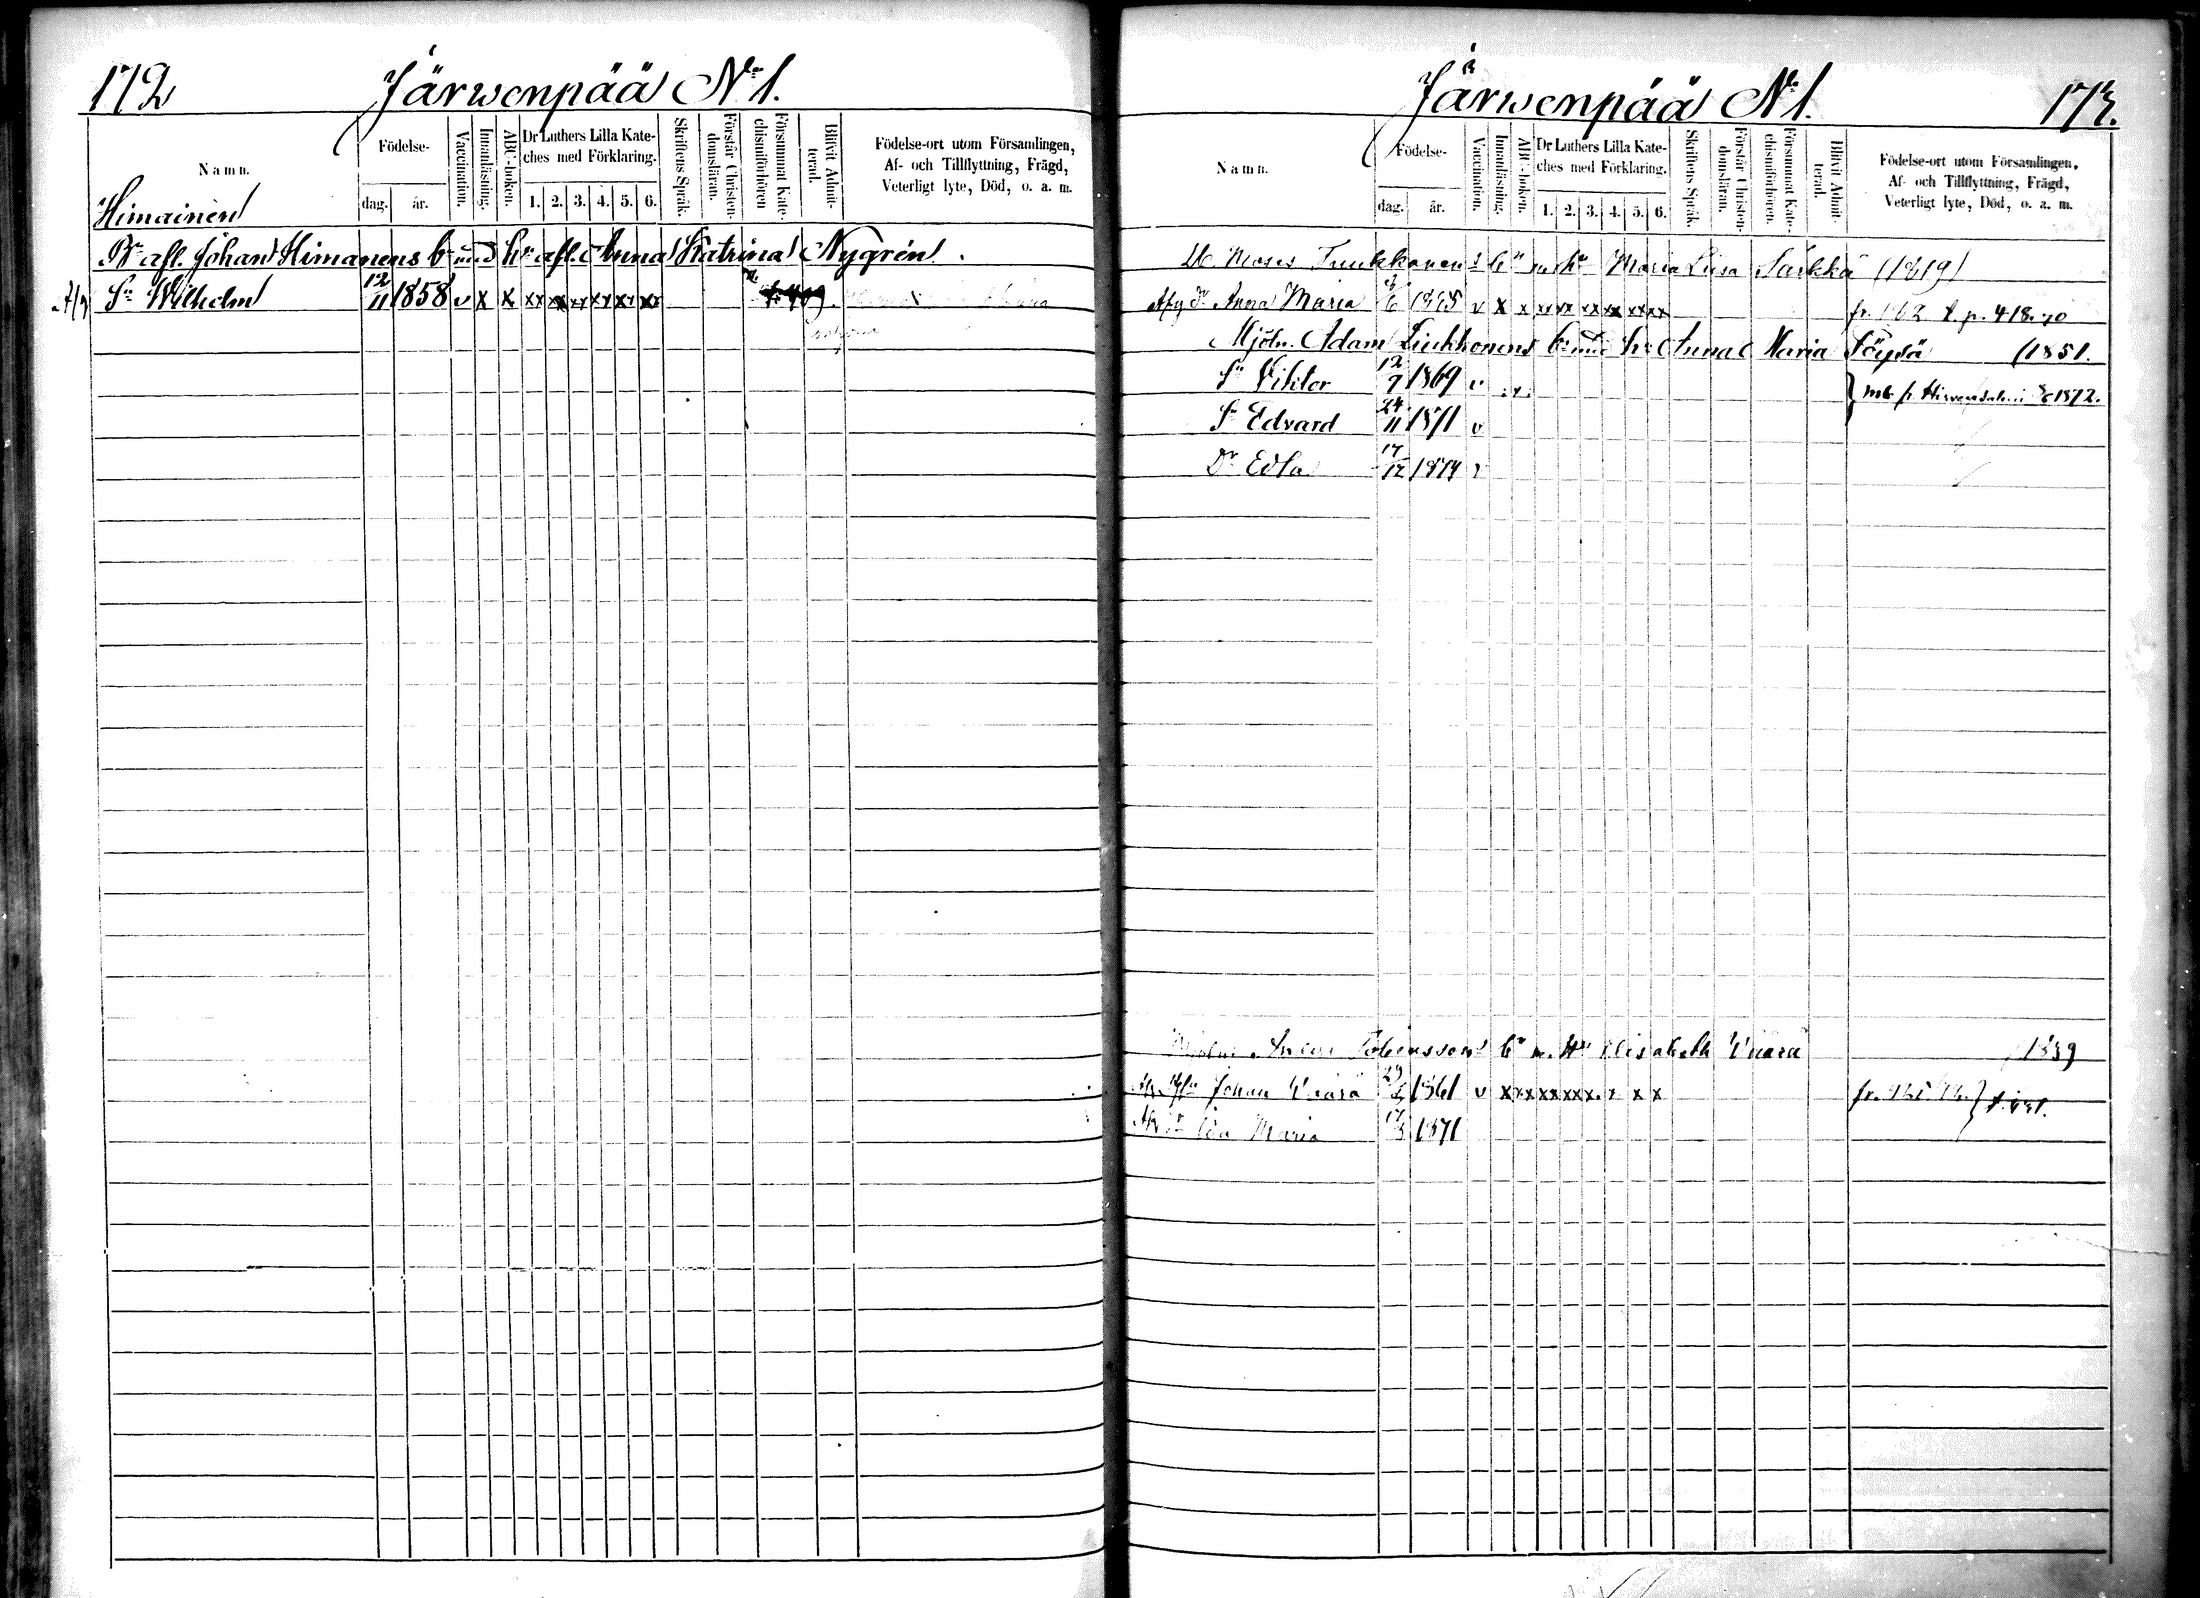 172 Järwenpää No 1.
Namn.
Födelse-
dag. år.
Vaccination.
Innanläsning.
ABC-boken.
Dr Luthers Lilla Kate-
ches med Förklaring.
1. 2. 3. 4. 5. 6.
Skriftens Språk.
Förstår Christen-
domsläran.
Försummat Kate-
chismiförhören
Blifvit Admit-
terad.
Födelse-ort utom Församlingen,
Af- och Tillflyttning, Frägd,
Veterligt lyte, Död, o. a. m.
Himainen
afl. Johan Himanens b und hu afl. Anna Katrina Nygrén.
Sn Wilhelm 12/11 1858 v x x xx xx xx xx xx xx
Järwenpää No 1. 173.
Namn.
Födelse-
dag. år.
Vaccination.
Innanläsning.
ABC-boken.
Dr Luthers Lilla Kate-
ches med Förklaring.
1. 2. 3. 4. 5. 6.
Skriftens Språk.
Förstår Christen-
domsläran.
Försummat Kate-
chismiförhören.
Blifvit Admit-
terad.
Födelse-ort utom Församlingen,
Af- och Tillflyttning, Frägd,
Veterligt lyte, Död, o. a. m.
Moses bn m. hu Maria Liisa Sarkkä (1819)
Anna Maria v x x xx xx xx xx xx xx fr. 162 t. p. 418. 70
Mjöln. Adam bn und hu Anna Maria (1851.
Sn Viktor 12/7 1869 v mb fr Hirvensalmi 1872.
Sn Edvard 24/11 1871 v
Dr Edla 17/12 1874 v
bn m. Hu Elisabeth 1839
Johan 1861 v x x x x x x x x x x
Ida Maria 1871